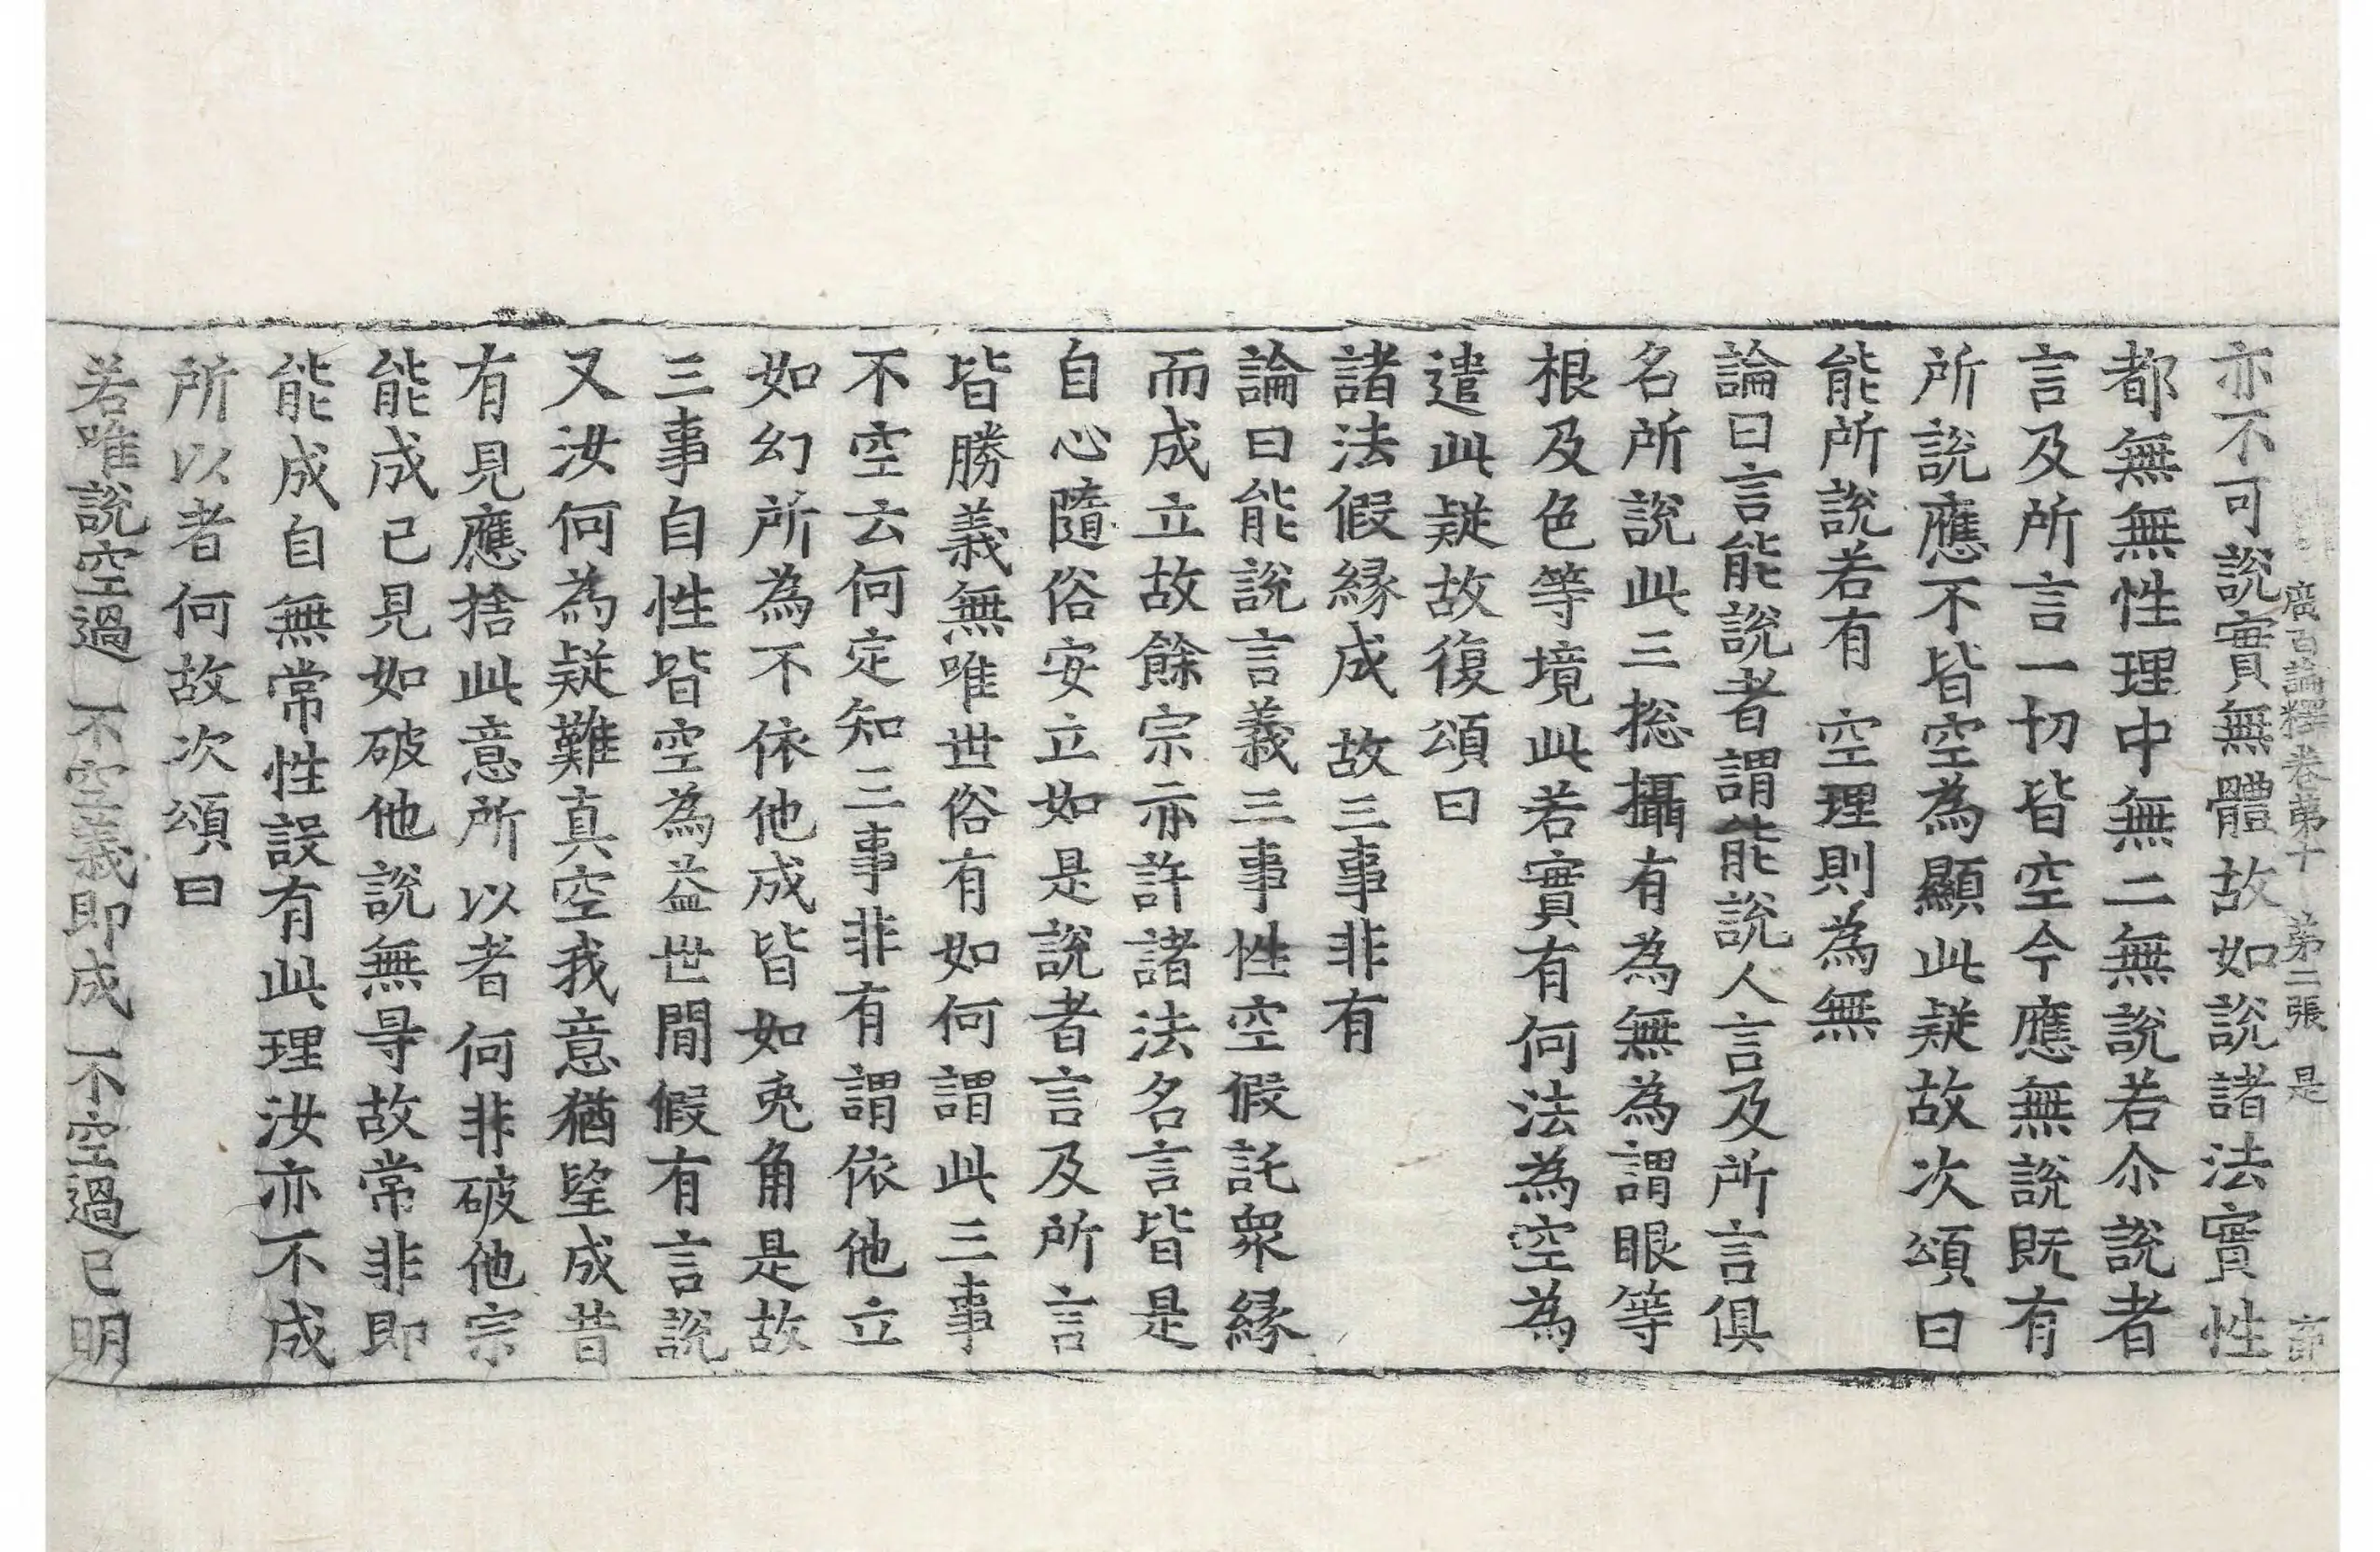 廣百論釋卷第十　第二張　是
亦不可說實無體故如說諸法實性
都無無性理中無二無說若尒說者
言及所言一切皆空今應無說既有
所說應不皆空為顯此疑故次頌曰
能所說若有　空理則為無
論曰言能說者謂能說人言及所言俱
名所說此三捴攝有為無為謂眼等
根及色等境此若實有何法為空為
遣此疑故復頌曰
諸法假縁成　故三事非有
論曰能說言義三事性空假託衆縁
而成立故餘宗亦許諸法名言皆是
自心隨俗安立如是說者言及所言
皆勝義無唯世俗有如何謂此三事
不空云何定知三事非有謂依他立
如幻所為不依他成皆如兎角是故
三事自性皆空為益世間假有言說
又汝何為疑難真空我意猶望成昔
有見應捨此意所以者何非破他宗
能成己見如破他說無㝵故常非即
能成自無常性設有此理汝亦不成
所以者何故次頌曰
若唯說空過　不空義即成　不空過已明